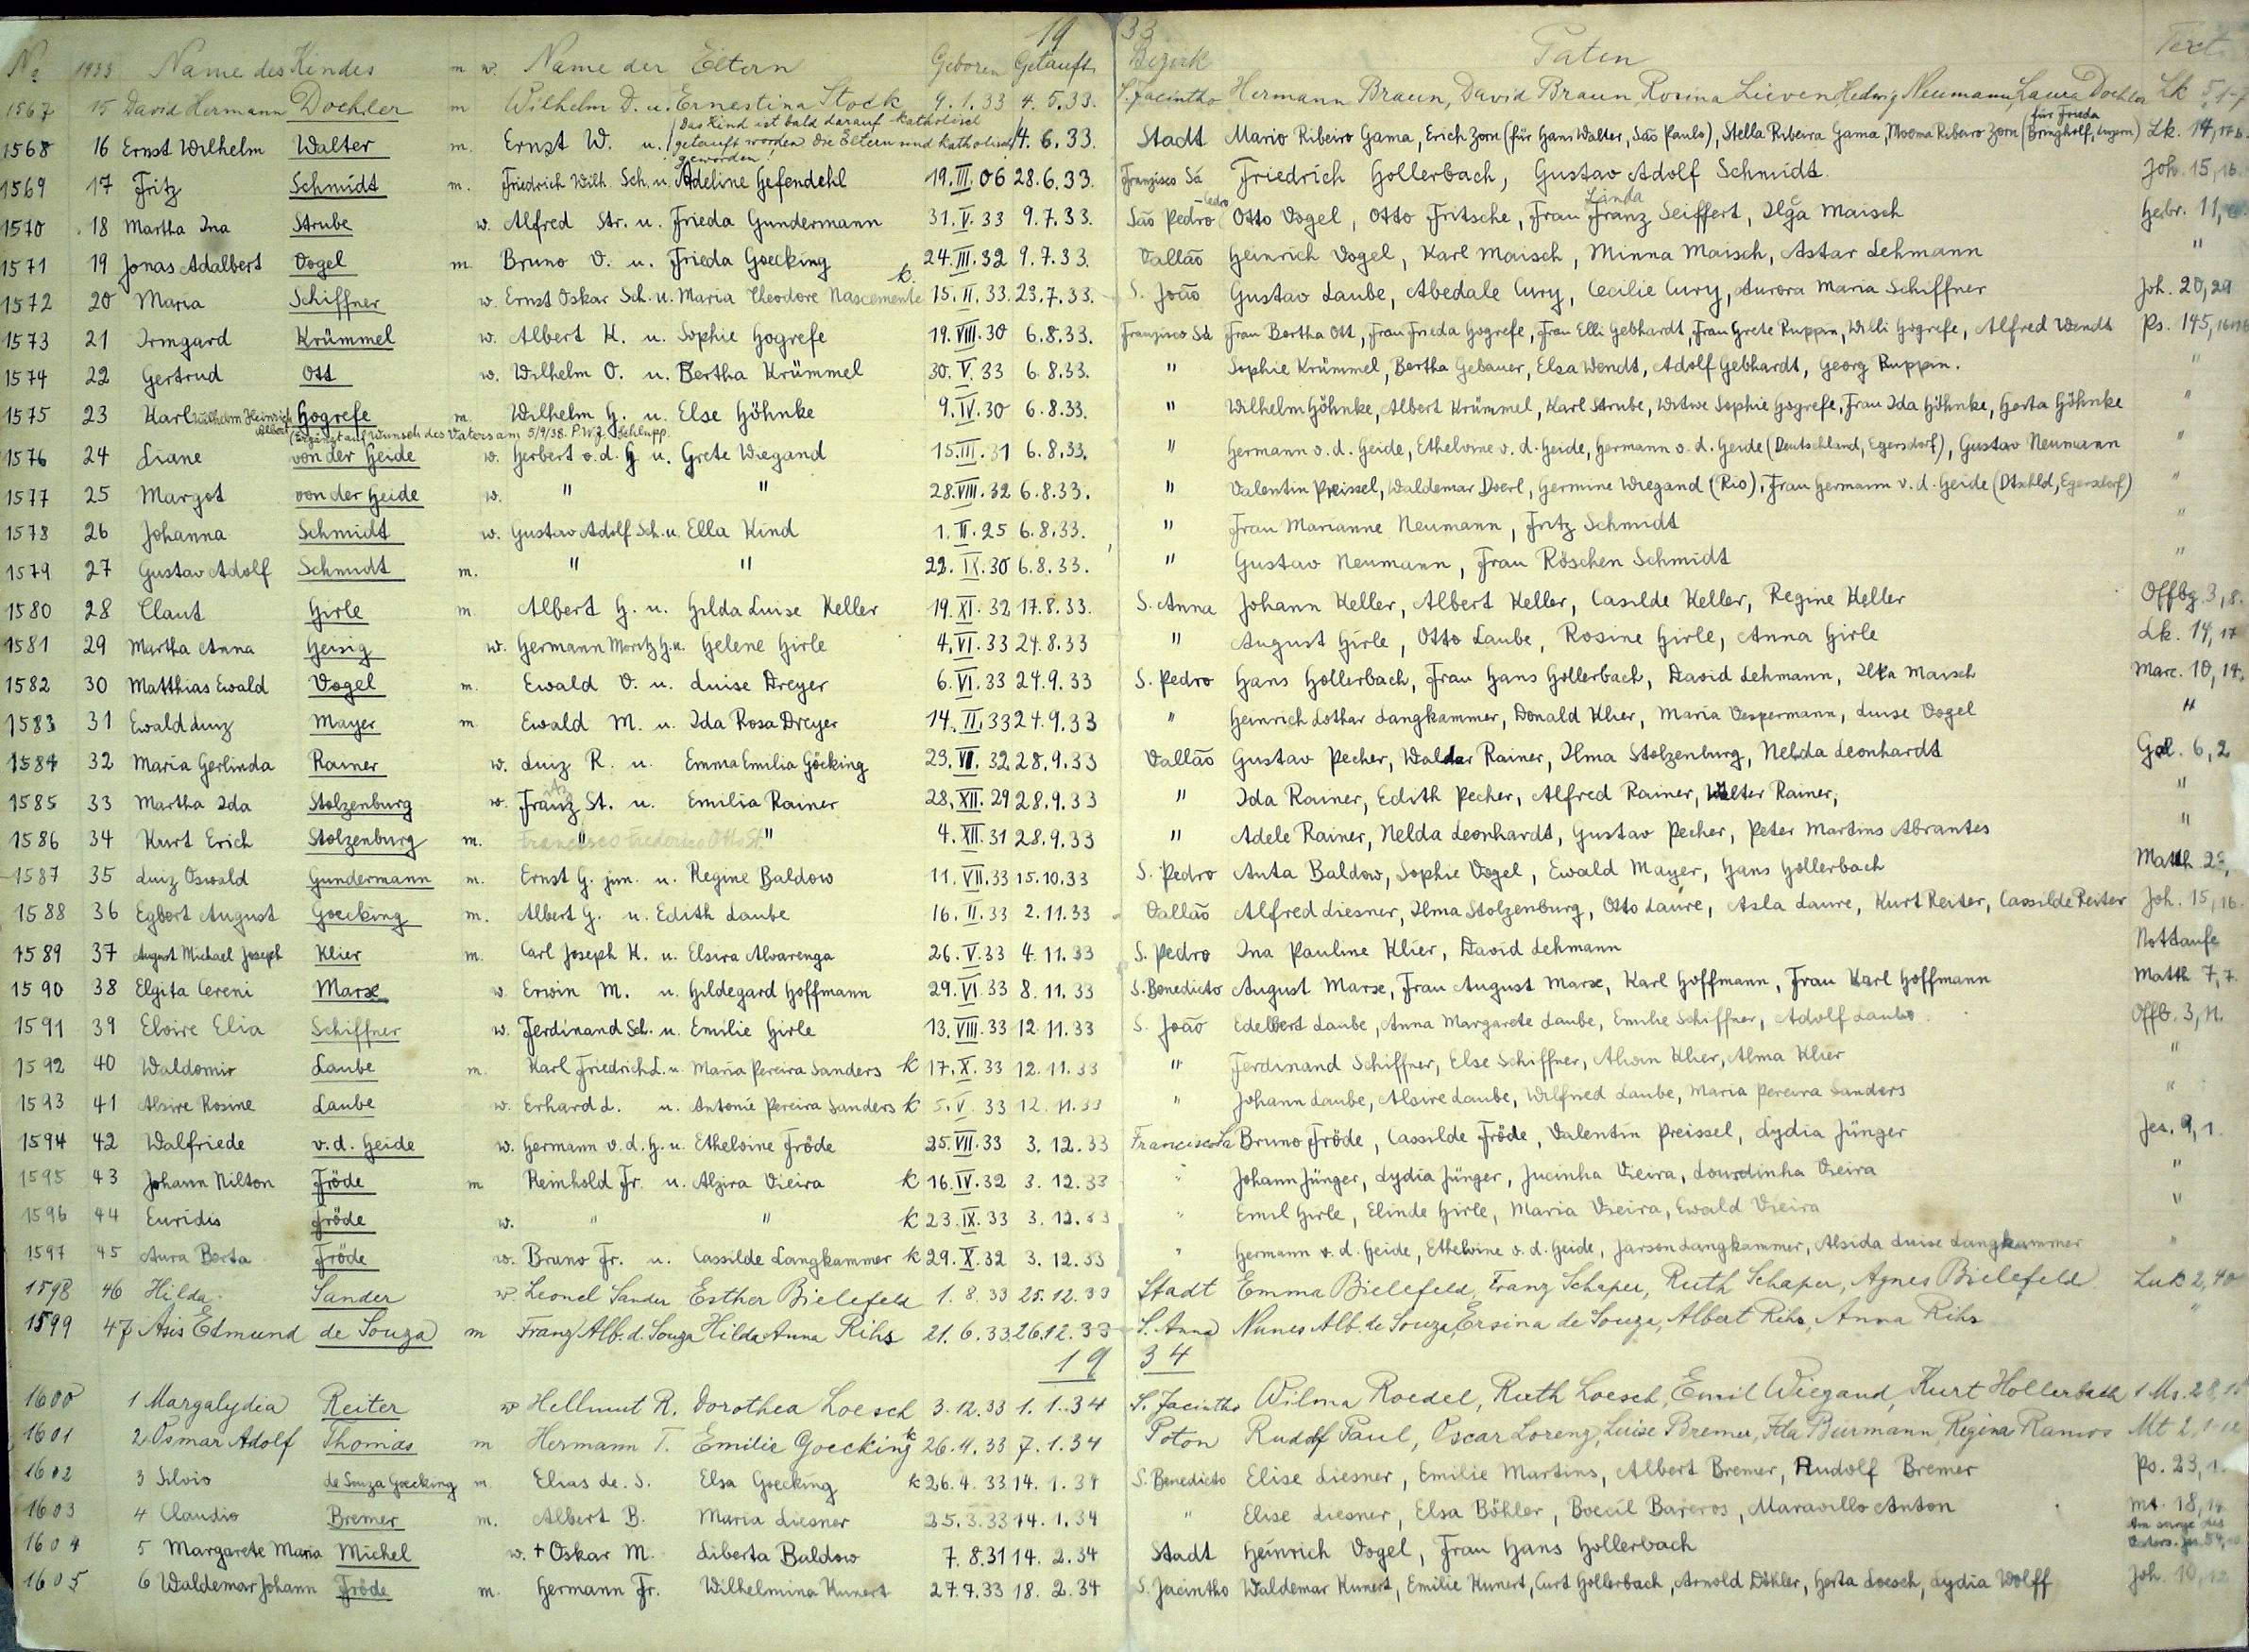 19 33
No 1933 Name des Kindes m w. Name der Eltern Geboren Getauft Bezirk Paten Text
1567 15 David Hermann Doehler m Wilhelm D. u. Ernestina Stock 9.1.33 4.5.33. S. Jacintho Hermann Braun, David Braun, Rosina Lieven, Hedwig Neumann, Laura Doehler Lk 5,1-7
1568 16 Ernst Wilhelm Walter m. Ernst W. u. (Das Kind ist bald darauf katholisch getauft worden die Eltern sind katholisch geworden! 4.6.33. Stadt Mario Ribeiro Gama, Erich Zorn (für Hans Walter, São Paulo), Stella Ribeira Gama, Mooma Ribeiro Zorn (für Frieda Lk. 14,17b.
1569 17 Fritz Schmidt m. Friedrich Wilh. Sch. u. Adeline Hefendehl 19.III.06 28.6.33. Franzisco Sá Friedrich Hollerbach, Gustav Adolf Schmidt. Joh. 15,16.
1570 18 Martha Ina Strube w. Alfred Str. u. Frieda Gundermann 31.V.33 9.7.33. São Pedro Otto Vogel, Otto Fritsche, Frau Linda Franz Seiffert, Ilga Maisch Hebr. 11,
1571 19 Jonas Adalbert Vogel m. Bruno V. u. Frieda Goecking 24.III.32 9.7.33. Vallão Heinrich Vogel, Karl Maisch, Minna Maisch, Astar Lehmann "
1572 20 Maria Schiffner w. Ernst Oskar Sch. u. Maria Theodore Nascemente k. 15.II.33. 23.7.33. S. João Gustav Laube, Abedale Cury, Cecilie Cury, Aurora Maria Schiffner Joh. 20,29
1573 21 Irmgard Krümmel w. Albert K. u. Sophie Hogrefe 19.VIII.30 6.8.33. Franzisco Sá Frau Bertha Ott, Frau Frieda Hogrefe, Frau Elli Gebhardt, Frau Grete Ruppin, Willi Hogrefe, Alfred Wendt Ps. 145,
1574 22 Gertrud Ott w. Wilhelm O. u. Bertha Krümmel 30.V.33 6.8.33. " Sophie Krümmel, Bertha Gebauer, Elsa Wendt, Adolf Gebhardt, Georg Ruppin. "
1575 23 Karl Wilhelm Heinrich Albert Hogrefe m. Wilhelm H. u. Else Höhnke 9.IV.30 6.8.33. " Wilhelm Höhnke, Albert Krümmel, Karl Strube, Witwe Sophie Hogrefe, Frau Ida Höhnke, Herta Höhnke "
(Ergänzt auf Wunsch des Vaters am 5/9/38. P.W.J. Schlupp.
1576 24 Liane von der Heide w. Herbert v.d.H u. Grete Wiegand 15.III.31 6.8.33. " Hermann v.d. Heide, Ethelvine v.d. Heide, Hermann v.d. Heide (Deutschland, Egersdorf), Gustav Neumann "
1577 25 Margot von der Heide w. " " 28.VIII.32 6.8.33. " Valentin Preissel, Waldemar Doerl, Hermine Wiegand (Rio), Frau Hermann v.d. Heide (Dtschld, Egersdorf) "
1578 26 Johanna Schmidt w. Gustav Adolf Sch. u. Ella Kind 1.II.25 6.8.33. " Frau Marianne Neumann, Fritz Schmidt "
1579 27 Gustav Adolf Schmidt m. " " 22.IX.30 6.8.33. " Gustav Neumann, Frau Röschen Schmidt "
1580 28 Claut Hirle m. Albert H. u. Hilda Luise Keller 19.XI.32 17.8.33. S. Anna Johann Keller, Albert Keller, Casilde Keller, Regine Keller Offbg. 3,8.
1581 29 Martha Anna Heisig w. Hermann Moritz H. u. Helene Hirle 4.VI.33 24.8.33 " August Hirle, Otto Laube, Rosine Hirle, Anna Hirle Lk. 14,17
1582 30 Matthias Ewald Vogel m. Ewald V. u. Luise Dreyer 6.VI.33 24.9.33 S. Pedro Hans Hollerbach, Frau Hans Hollerbach, David Lehmann, Ilka Maisch Marc. 10,14.
1583 31 Ewald Luiz Mayer m. Ewald M. u. Ida Rosa Dreyer 14.II.33 24.9.33 " Heinrich Lothar Langkammer, Donald Klier, Maria Vespermann, Luise Vogel "
1584 32 Maria Gerlinda Rainer w. Luiz R. u. Emma Emilia Göcking 23.VII.32 28.9.33 Vallão Gustav Pecher, Waldar Rainer, Ilma Stolzenburg, Nelda Leonhardt Gal. 6,2
1585 33 Martha Ida Stolzenburg w. Franz St. u. Emilia Rainer 28.XII.29 28.9.33 " Ida Rainer, Edith Pecher, Alfred Rainer, Walter Rainer, "
1586 34 Kurt Erich Stolzenburg m. Francisco Frederico Otto St. " 4.XII.31 28.9.33 " Adele Rainer, Nelda Leonhardt, Gustav Pecher, Peter Martins Abrantes "
1587 35 Luiz Oswald Gundermann m. Ernst G. jun. u. Regine Baldow 11.VII.33 15.10.33 S. Pedro Anta Baldow, Sophie Vogel, Ewald Mayer, Hans Hollerbach Matth
1588 36 Egbert August Goecking m. Albert G. u. Edith Laube 16.II.33 2.11.33 Vallão Alfred Liesner, Ilma Stolzenburg, Otto Laure, Asla Laure, Kurt Reiter, Cassilde Reiter Joh. 15,16.
1589 37 August Michael Joseph Klier m. Carl Joseph K. u. Elsira Alvarenga 26.V.33 4.11.33 S. Pedro Ina Pauline Klier, David Lehmann Nottaufe
1590 38 Elgita Cereni Marx w. Erwin M. u. Hildegard Hoffmann 29.VI.33 8.11.33 S. Benedicto August Marx, Frau August Marx, Karl Hoffmann, Frau Karl Hoffmann Matth 7,7.
1591 39 Eloire Elia Schiffner w. Ferdinand Sch. u. Emilie Hirle 13.VIII.33 12.11.33 S. João Edelbert Laube, Anna Margarete Laube, Emilie Schiffner, Adolf Laube. Offb. 3,11.
1592 40 Waldomir Laube m. Karl Friedrich L. u. Maria Pereira Sanders k 17.X.33 12.11.33 " Ferdinand Schiffner, Else Schiffner, Alwin Klier, Alma Klier "
1593 41 Alsire Rosine Laube w. Erhard L. u. Antonie Pereira Sanders k 5.V.33 12.11.33 " Johann Laube, Alsire Laube, Wilfried Laube, Maria Pereira Sanders "
1594 42 Walfriede v.d. Heide w. Hermann v.d.H. u. Ethelvine Fröde 25.VII.33 3.12.33 Francisco Sa Bruno Fröde, Cassilde Fröde, Valentin Preissel, Lydia Jünger Jes. 9,1.
1595 43 Johann Nilton Fröde m Reinhold Fr. u. Alzira Vieira k 16.IV.32 3.12.33 " Johann Jünger, Lydia Jünger, Jucinha Vieira, Lourdinha Vieira "
1596 44 Euridis Fröde w. " " k 23.IX.33 3.12.33 " Emil Hirle, Elinde Hirle, Maria Vieira, Ewald Vieira "
1597 45 Aura Berta Fröde w. Bruno Fr. u. Cassilde Langkammer k 29.X.32 3.12.33 " Hermann v.d. Heide, Ethelvine v.d. Heide, Jarson Langkammer, Alsida Luise Langkammer "
1598 46 Hilda Sander w Leonel Sander Esther Bielefeld 1.8.33 25.12.33 Stadt Emma Bielefeld, Franz Schaper, Ruth Schaper, Agnes Bielefeld Luk 2,40
1599 47 Asis Edmund de Souza m Franz Alb. d. Souza Hilda Anna Rihs 21.6.33 26.12.33 S. Anna Nunes Alb. de Souza, Ersina de Souza, Albert Rihs, Anna Rihs "
19 34
1600 1 Margalydia Reiter w Hellmut R. Dorothea Loesch 3.12.33 1.1.34 S. Jacintho Wilma Roedel, Ruth Loesch, Emil Wiegand, Kurt Hollerbach 1 Ms. 28,15
1601 2 Osmar Adolf Thomas m Hermann T. Emilie Goecking k 26.4.33 7.1.34 Poton Rudolf Paul, Oscar Lorenz, Luise Bremer, Ida Burmann, Regina Ramos Mt 2,1-12
1602 3 Silvio de Souza Goecking m Elias de S. Elsa Goecking k 26.4.33 14.1.34 S. Benedicto Elise Liesner, Emilie Martins, Albert Bremer, Rudolf Bremer Ps. 23,1.
1603 4 Claudio Bremer m. Albert B. Maria Liesner 25.3.33 14.1.34 " Elise Liesner, Elsa Böhler, Boecil Bareros, Maravillo Anton Mt. 18,14
1604 5 Margarete Maria Michel w. + Oskar M. Liberta Baldow 7.8.31 14.2.34 Stadt Heinrich Vogel, Frau Hans Hollerbach Am Sarge des Vaters. Jes. 54,10
1605 6 Waldemar Johann Fröde m. Hermann Fr. Wilhelmina Kunert 27.7.33 18.2.34 S. Jacintho Waldemar Kunert, Emilie Kunert, Curt Hollerbach, Arnold Döhler, Herta Loesch, Lydia Wolff Joh. 10,12